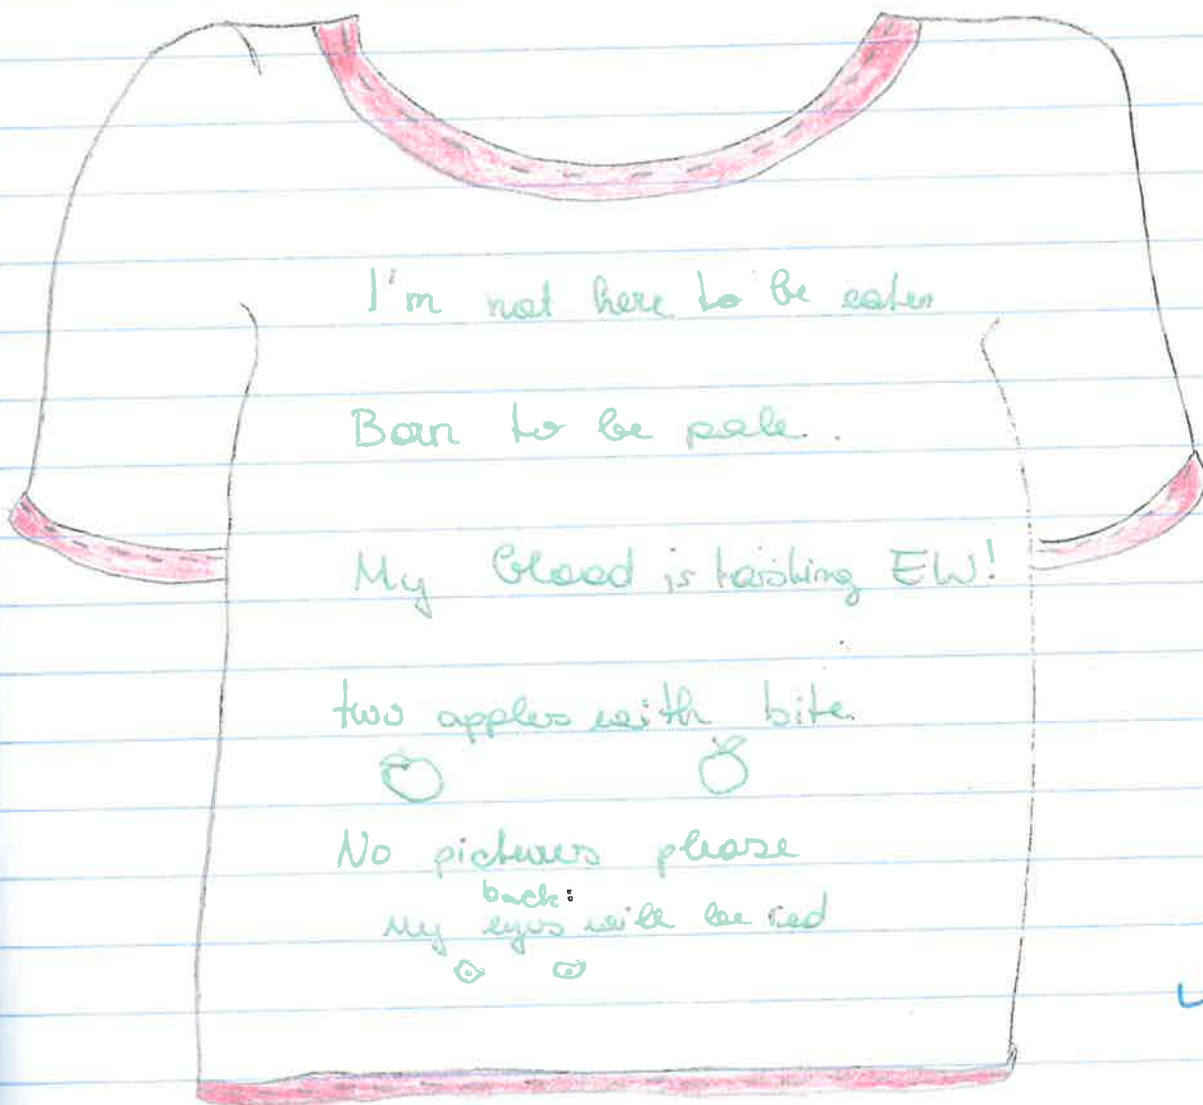 I'm not here to be eaten
Born to be pale.
My blood is taisting EW!
two apples with bite
No pictures please
back:
My eyes will be red